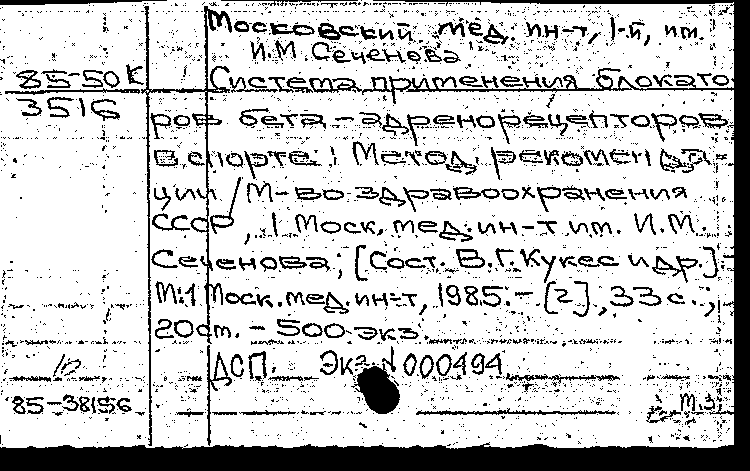 Московский мед. ин-т, 1-й, им.
И.М. Сеченова
85-50К
Система применения блокато-
3516
ров бета-адренорецепторов
в спорте: Метод. рекоменда-
ции / М-во здравоохранения
СССР, 1 Моск. мед. ин-т им. И.М.
Сеченова; [Сост. В.Г. Кукес и др.] -
М.: 1 Моск. мед. ин-т, 1985. - [2], 33 с.;
20 cm. - 500 экз.
10
ДСП. Экз N 000494
85-38156
М.З.